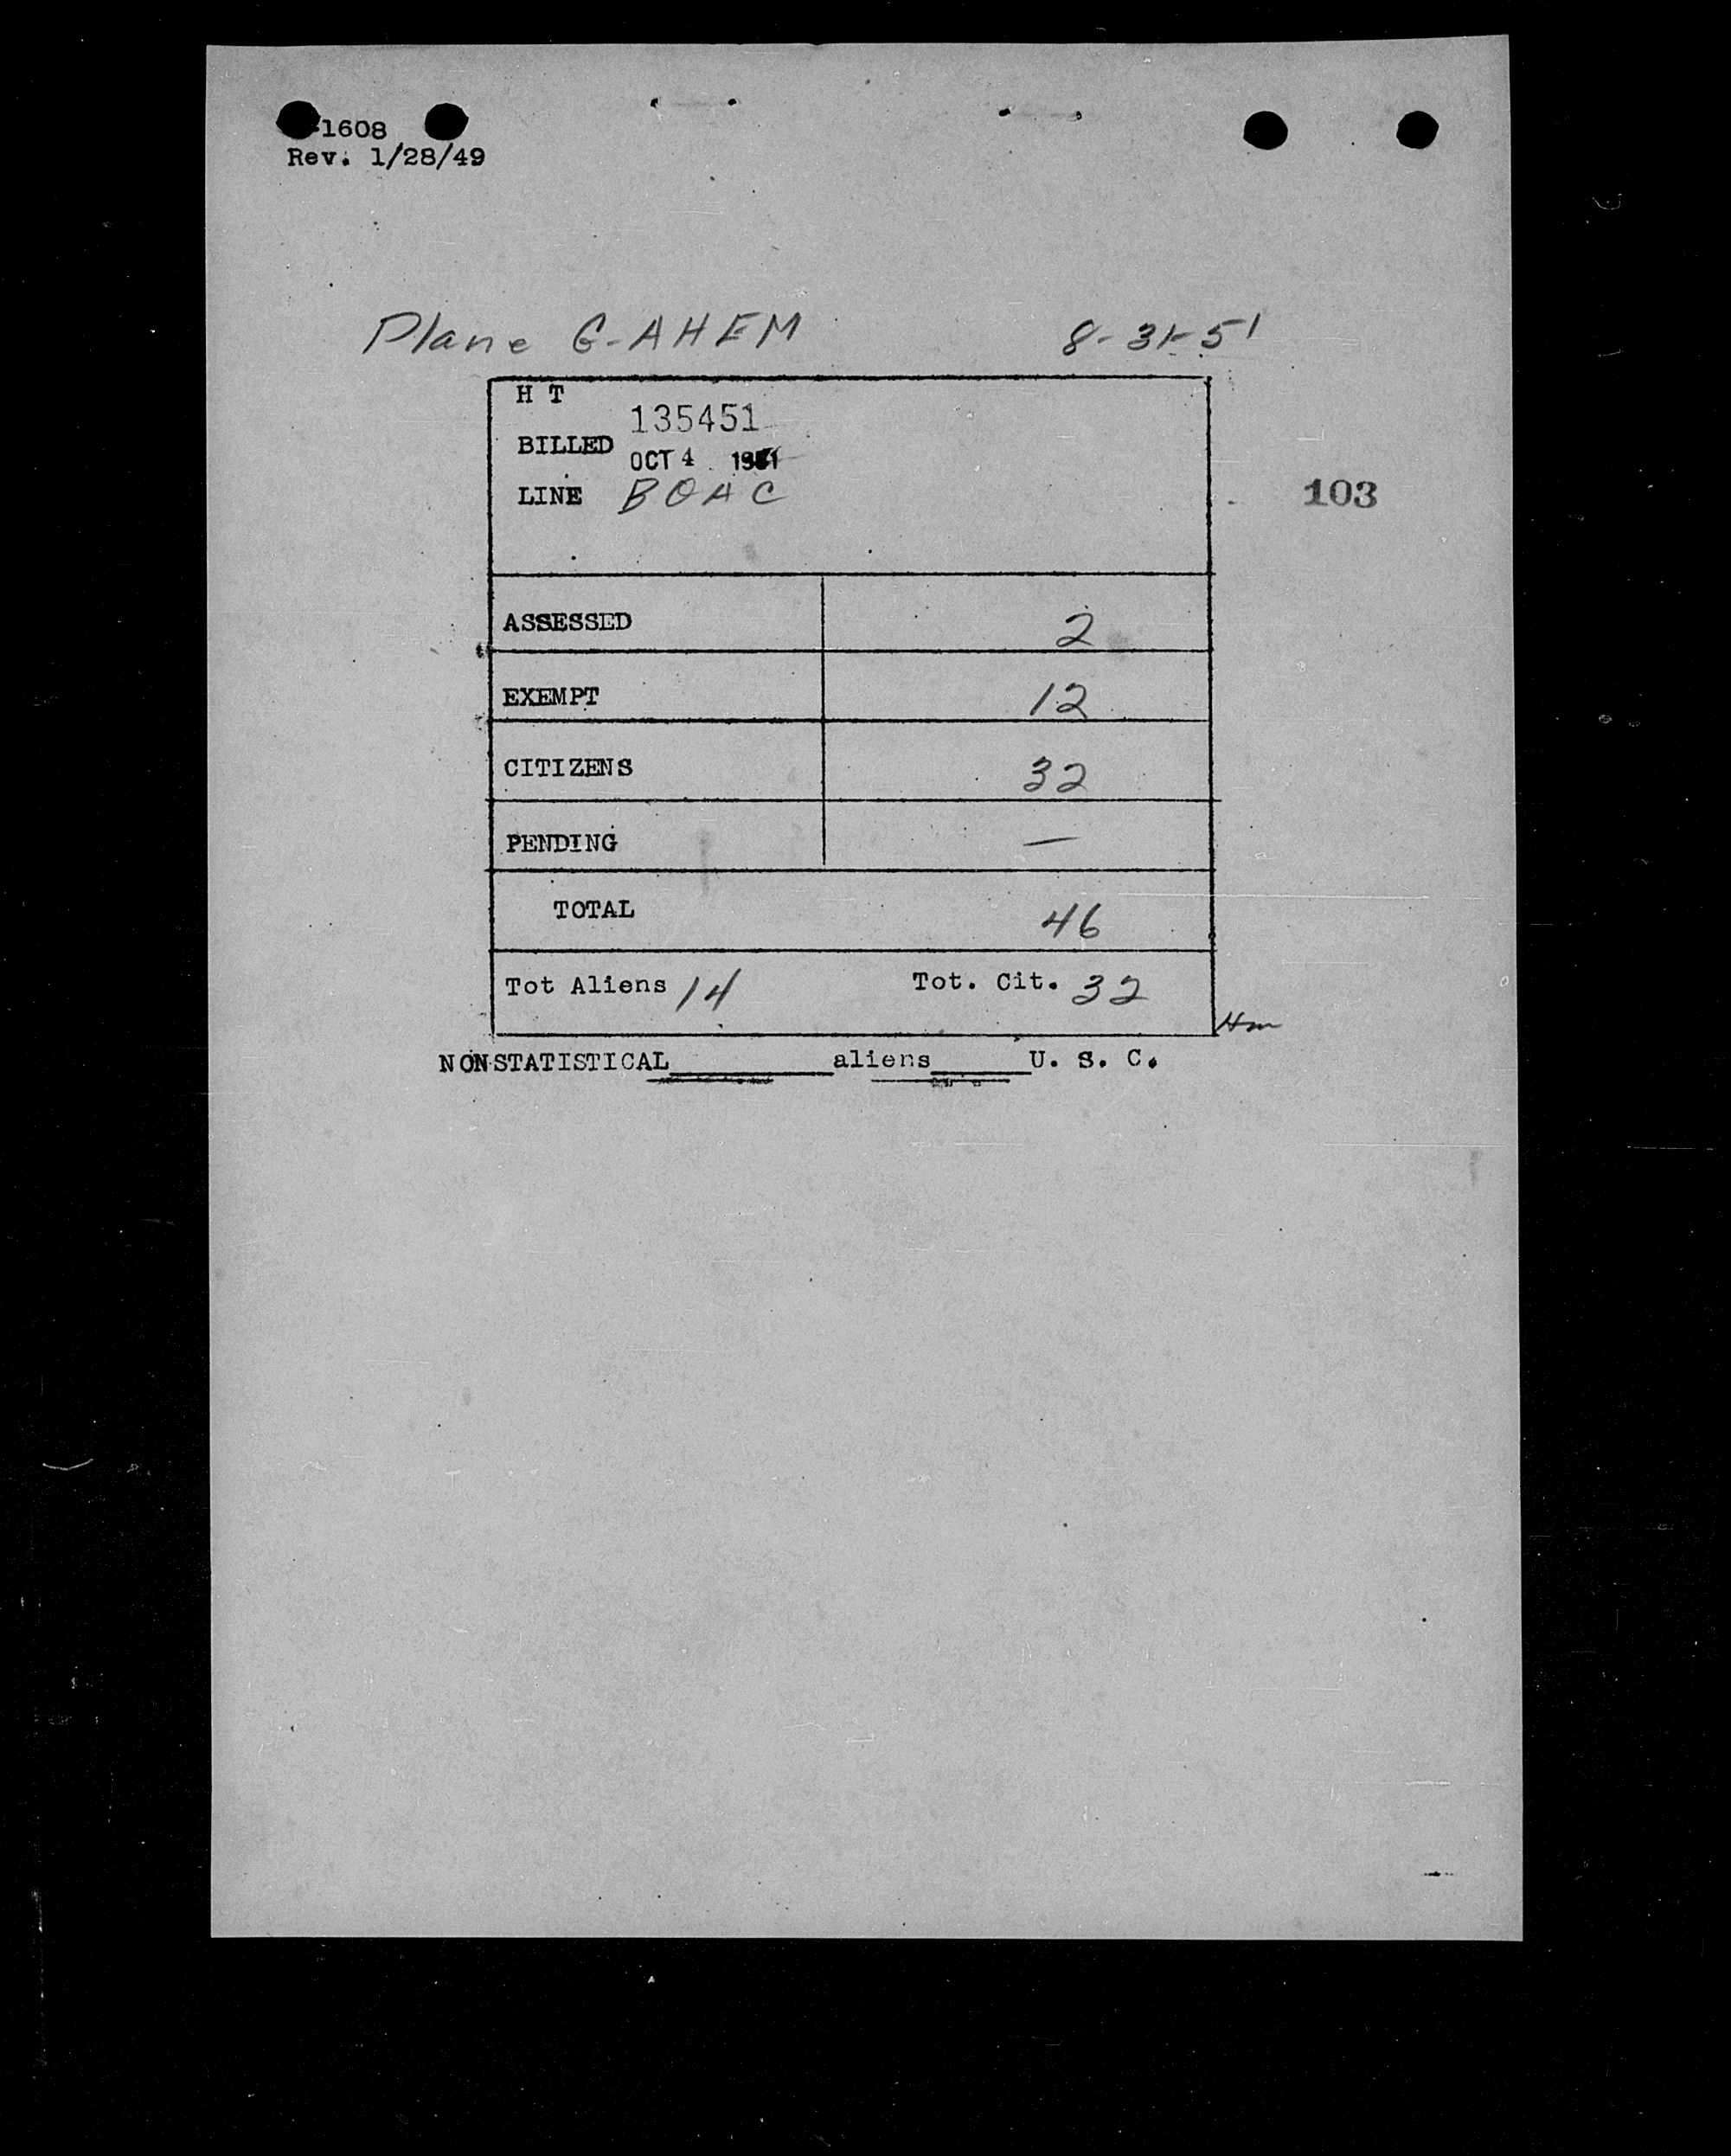 -1608
Rev. 1/28/49
Plane G-AHEM 8-31-51
H T
135451
BILLED
OCT 4 1951
LINE BOAC
103
ASSESSED 2
EXEMPT 12
CITIZENS 32
PENDING —
TOTAL 46
Tot Aliens 14 Tot. Cit. 32
NONSTATISTICAL________aliens_____U. S. C.